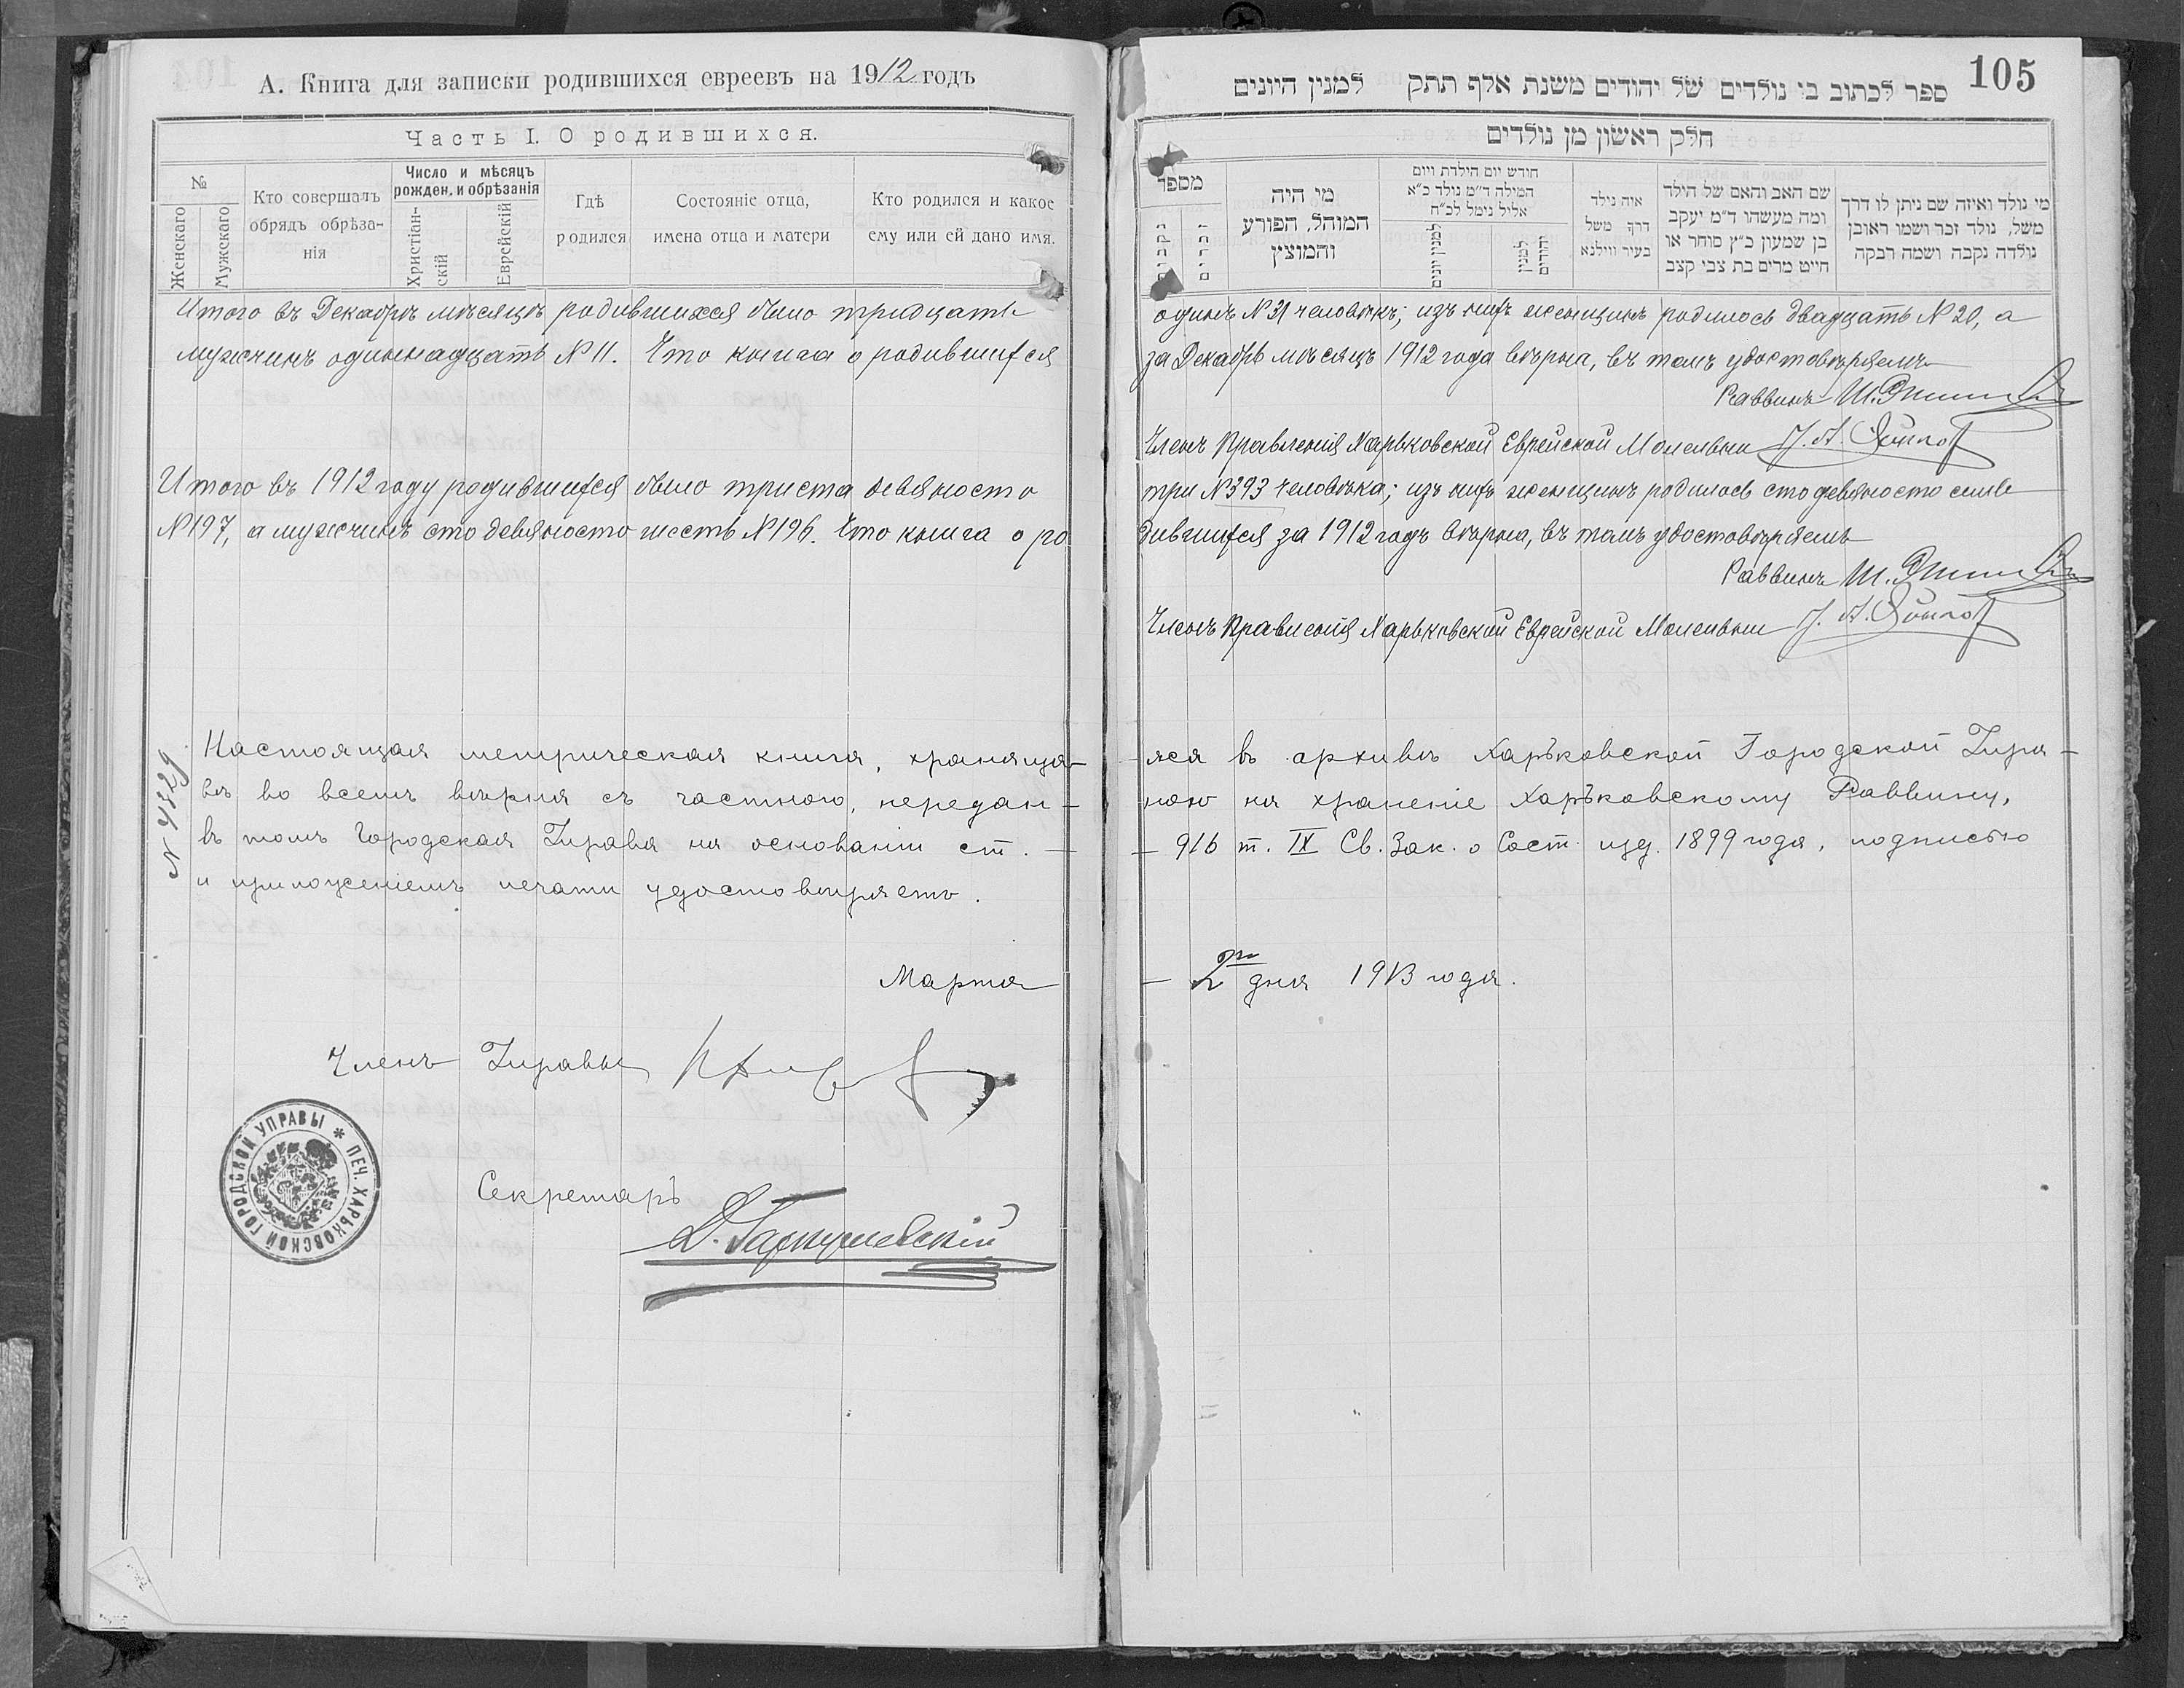 А. Книга для записки родившихся евреевъ на 1912 годъ
Часть I. О родившихся.
№
Женскаго
Мужскаго
Кто совершалъ
обрядъ обрѣза-
нія
Число и мѣсяцъ
рожден. и обрѣзанія
Христіан-
скій
Еврейскій
Гдѣ
родился
Состояніе отца,
имена отца и матери
Кто родился и какое
ему или ей дано имя.
Итого въ Декабрѣ мѣсяцѣ родившихся было тридцать
мужчинъ одиннадцать №11. Что книга о родившихся
Итого въ 1912 году родившихся было триста девяносто
№197, а мужчинъ сто девяносто шесть №196. Что книга о ро
№ 4829
Настоящая метрическая книга, храняща-
во всемъ вѣрна съ частною, передан-
въ томъ Городская Управа на основаніи ст. -
и приложеніемъ печати удостовѣряетъ.
Марта
Членъ Управы
ПЕЧ. ХАРЬКОВСКОЙ ГОРОДСКОЙ УПРАВЫ *
Секретарь
105
ספר לכתוב בו נולדים של יהודים משנת אלף תתק למנין היונים
חלק ראשון מן נולדים
מספר
נקבים
זכרים
מי היה
המוהל, הפורע
והמוצץ
חודש יום הילדת ויום
המילה ד״מ נולד כ״א
אליל נימל לכ״ח
למנין יונים
למנין
יהודים
איה נילד
דרך משל
בעיר ווילנא
שם האב והאם של הילד
ומה מעשהו ד״מ יעקב
בן שמעון כ״ץ סוחר או
חייט מרים בת צבי קצב
מי נולד ואיזה שם ניתן לו דרך
משל, נולד זכר ושמו ראובן
נולדה נקבה ושמה רבקה
одинъ №31 человѣкъ; изъ нихъ женщинъ родилось двадцать №20, а
за Декабрь мѣсяцъ 1912 года вѣрна, въ томъ удостовѣряемъ
Раввинъ
Членъ Правленія Харьковской Еврейской Молельни
три №393 человѣка; изъ нихъ женщинъ родилось сто девяносто семь
дившихся за 1912 годъ вѣрна, въ томъ удостовѣряемъ
Раввинъ
Членъ Правленія Харьковской Еврейской Молельни
-яся въ архивѣ Харьковской Городской Упра-
ною на храненіе Харьковскому Раввину,
- 916 т. IX Св. Зак. о Сост. изд. 1899 года, подписью
- 2го дня 1913 года.